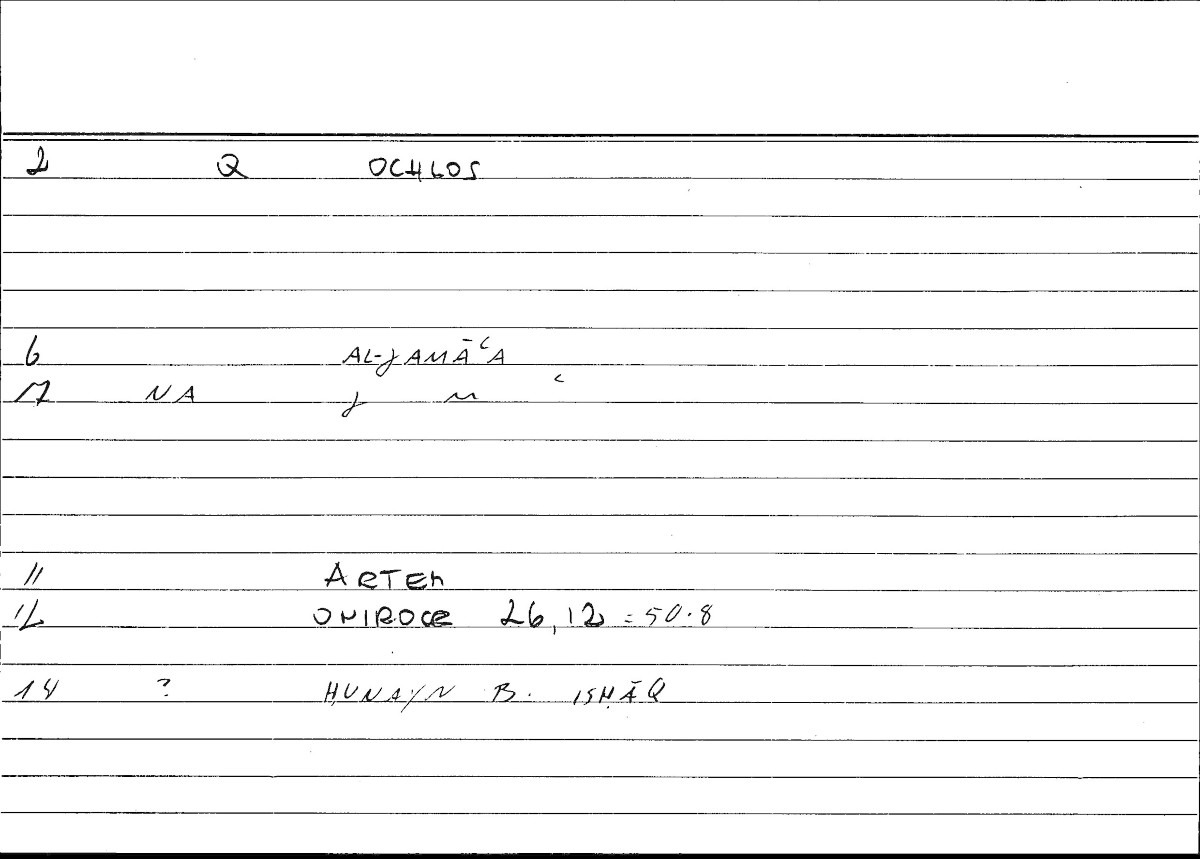 2 Q OCHLOS
6 AL-JAMĀʿA
17 NA J M ʿ
11 ARTEM
12 ONIROCR 26,12 = 50.8
14 ? ḤUNAYN B. ISḤĀQ